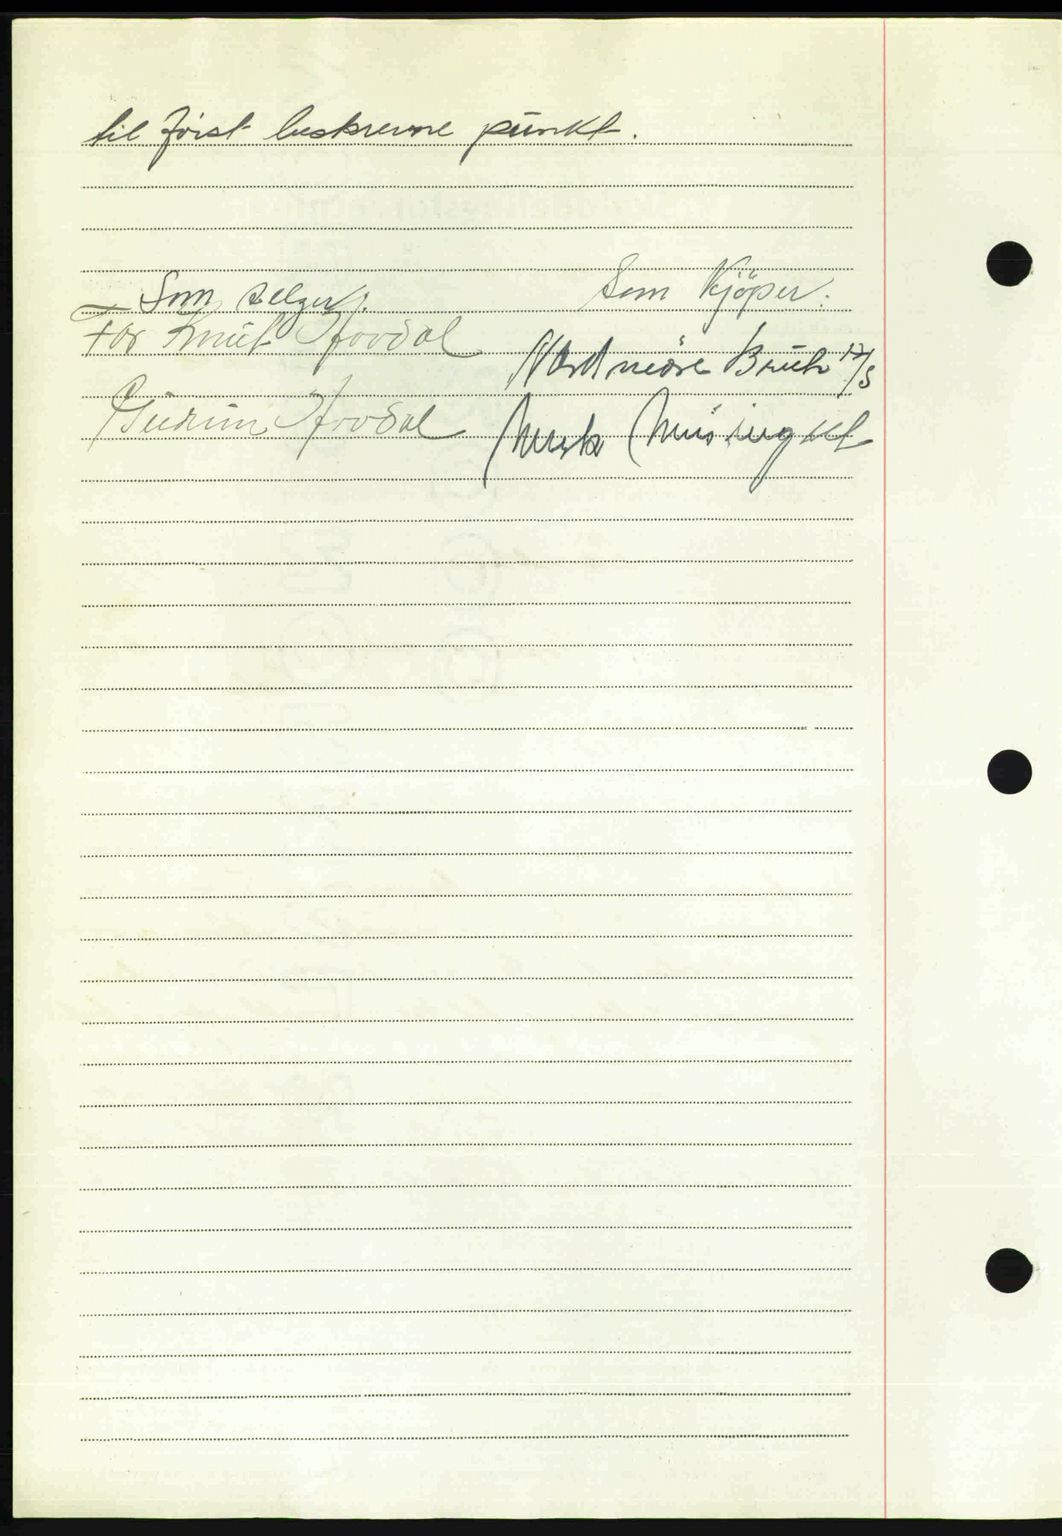 til först beskrevne punkt.
Som selger.
For Knut Hovdal
Gudrun Hovdal
Som Kjöper:
Nordmöre Bruk A/S